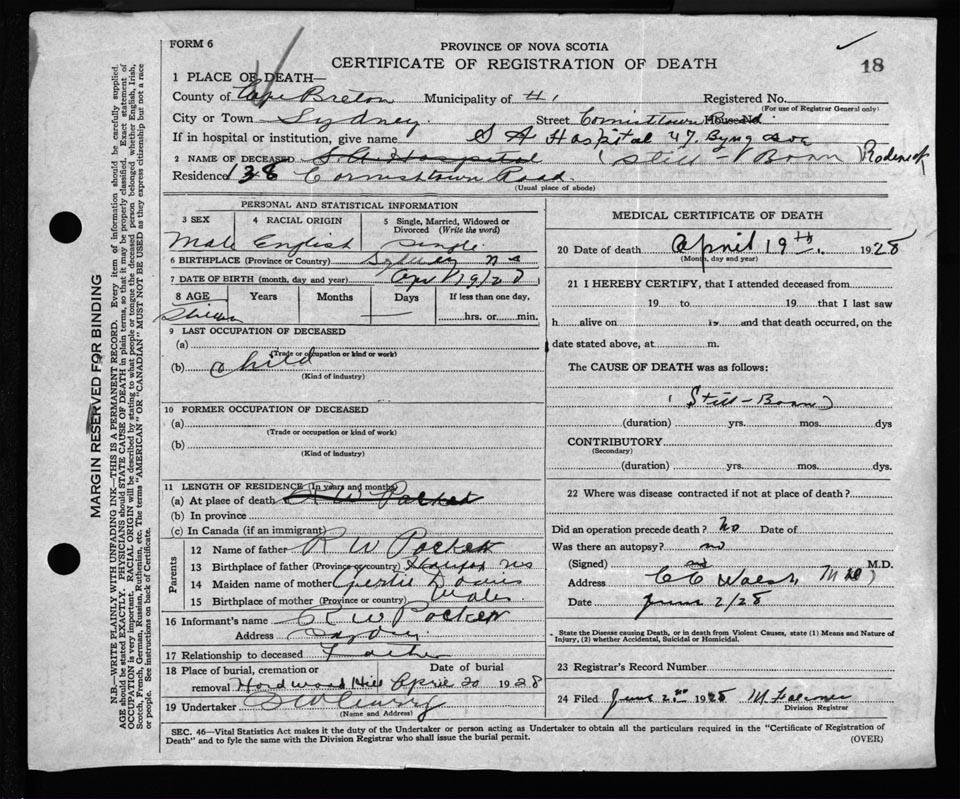 FORM 6
PROVINCE OF NOVA SCOTIA
CERTIFICATE OF REGISTRATION OF DEATH
18
1 PLACE OF DEATH—
County of Cape Breton Municipality of Registered No.
(For use of Registrar General only)
City or Town Sydney. Street House No.
If in hospital or institution, give name S A Hospital 47. Byng Ave
2 NAME OF DECEASED S. A. Hospital (Still-Born)
Residence 138 Cornishtown Road.
(Usual place of abode)
PERSONAL AND STATISTICAL INFORMATION
3 SEX 4 RACIAL ORIGIN 5 Single, Married, Widowed or Divorced (Write the word)
Male English Single
6 BIRTHPLACE (Province or Country) Sydney N S
7 DATE OF BIRTH (month, day and year) Apr 19/28
8 AGE Years Months Days If less than one day,
......hrs. or......min.
9 LAST OCCUPATION OF DECEASED
(a)
(Trade or occupation or kind or work)
(b) Child
(Kind of industry)
10 FORMER OCCUPATION OF DECEASED
(a)
(Trade or occupation or kind of work)
(b)
(Kind of industry)
11 LENGTH OF RESIDENCE (In years and months)
(a) At place of death
(b) In province
(c) In Canada (if an immigrant)
Parents
12 Name of father R W
13 Birthplace of father (Province or country) NS
14 Maiden name of mother Gertie Davis
15 Birthplace of mother (Province or country) Wales
16 Informant's name R W
Address Sydney
17 Relationship to deceased Father
18 Place of burial, cremation or Date of burial
removal Hardwood Hill April 20 1928
19 Undertaker
(Name and Address)
MEDICAL CERTIFICATE OF DEATH
20 Date of death April 19th. 1928
(Month, day and year)
21 I HEREBY CERTIFY, that I attended deceased from
19 to 19 that I last saw
h alive on 19 and that death occurred, on the
date stated above, at m.
The CAUSE OF DEATH was as follows:
(Still-Born)
(duration) yrs. mos. dys
CONTRIBUTORY
(Secondary)
(duration) yrs. mos. dys.
22 Where was disease contracted if not at place of death?
Did an operation precede death? No Date of
Was there an autopsy? no
(Signed) M.D.
Address M D)
Date June 2/28
State the Disease causing Death, or in death from Violent Causes, state (1) Means and Nature of
Injury, (2) whether Accidental, Suicidal or Homicidal.
23 Registrar's Record Number
24 Filed June 2nd 1928
Division Registrar
SEC. 46—Vital Statistics Act makes it the duty of the Undertaker or person acting as Undertaker to obtain all the particulars required in the "Certificate of Registration of
Death" and to fyle the same with the Division Registrar who shall issue the burial permit.
(OVER)
MARGIN RESERVED FOR BINDING
N.B.—WRITE PLAINLY WITH UNFADING INK—THIS IS A PERMANENT RECORD. Every item of information should be carefully supplied.
AGE should be stated EXACTLY. PHYSICIANS should STATE CAUSE OF DEATH in plain terms, so that it may be properly classified. Exact statement of
OCCUPATION is very important. RACIAL ORIGIN will be described by stating to what people or tongue the deceased person belonged whether English, Irish,
Scotch, French, German, Russian, Ruthenian, etc. The terms "AMERICAN" OR "CANADIAN" MUST NOT BE USED as they express citizenship but not a race
or people. See instructions on back of Certificate.